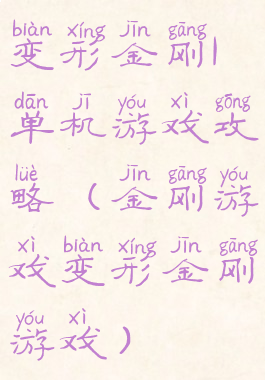 biàn xíng jīn gāng
变形金刚|
dān jī yóu xì gōng
单机游戏攻
lüè jīn gāng yóu
略（金刚游
xì biàn xíng jīn gāng
戏变形金刚
yóu xì
游戏）